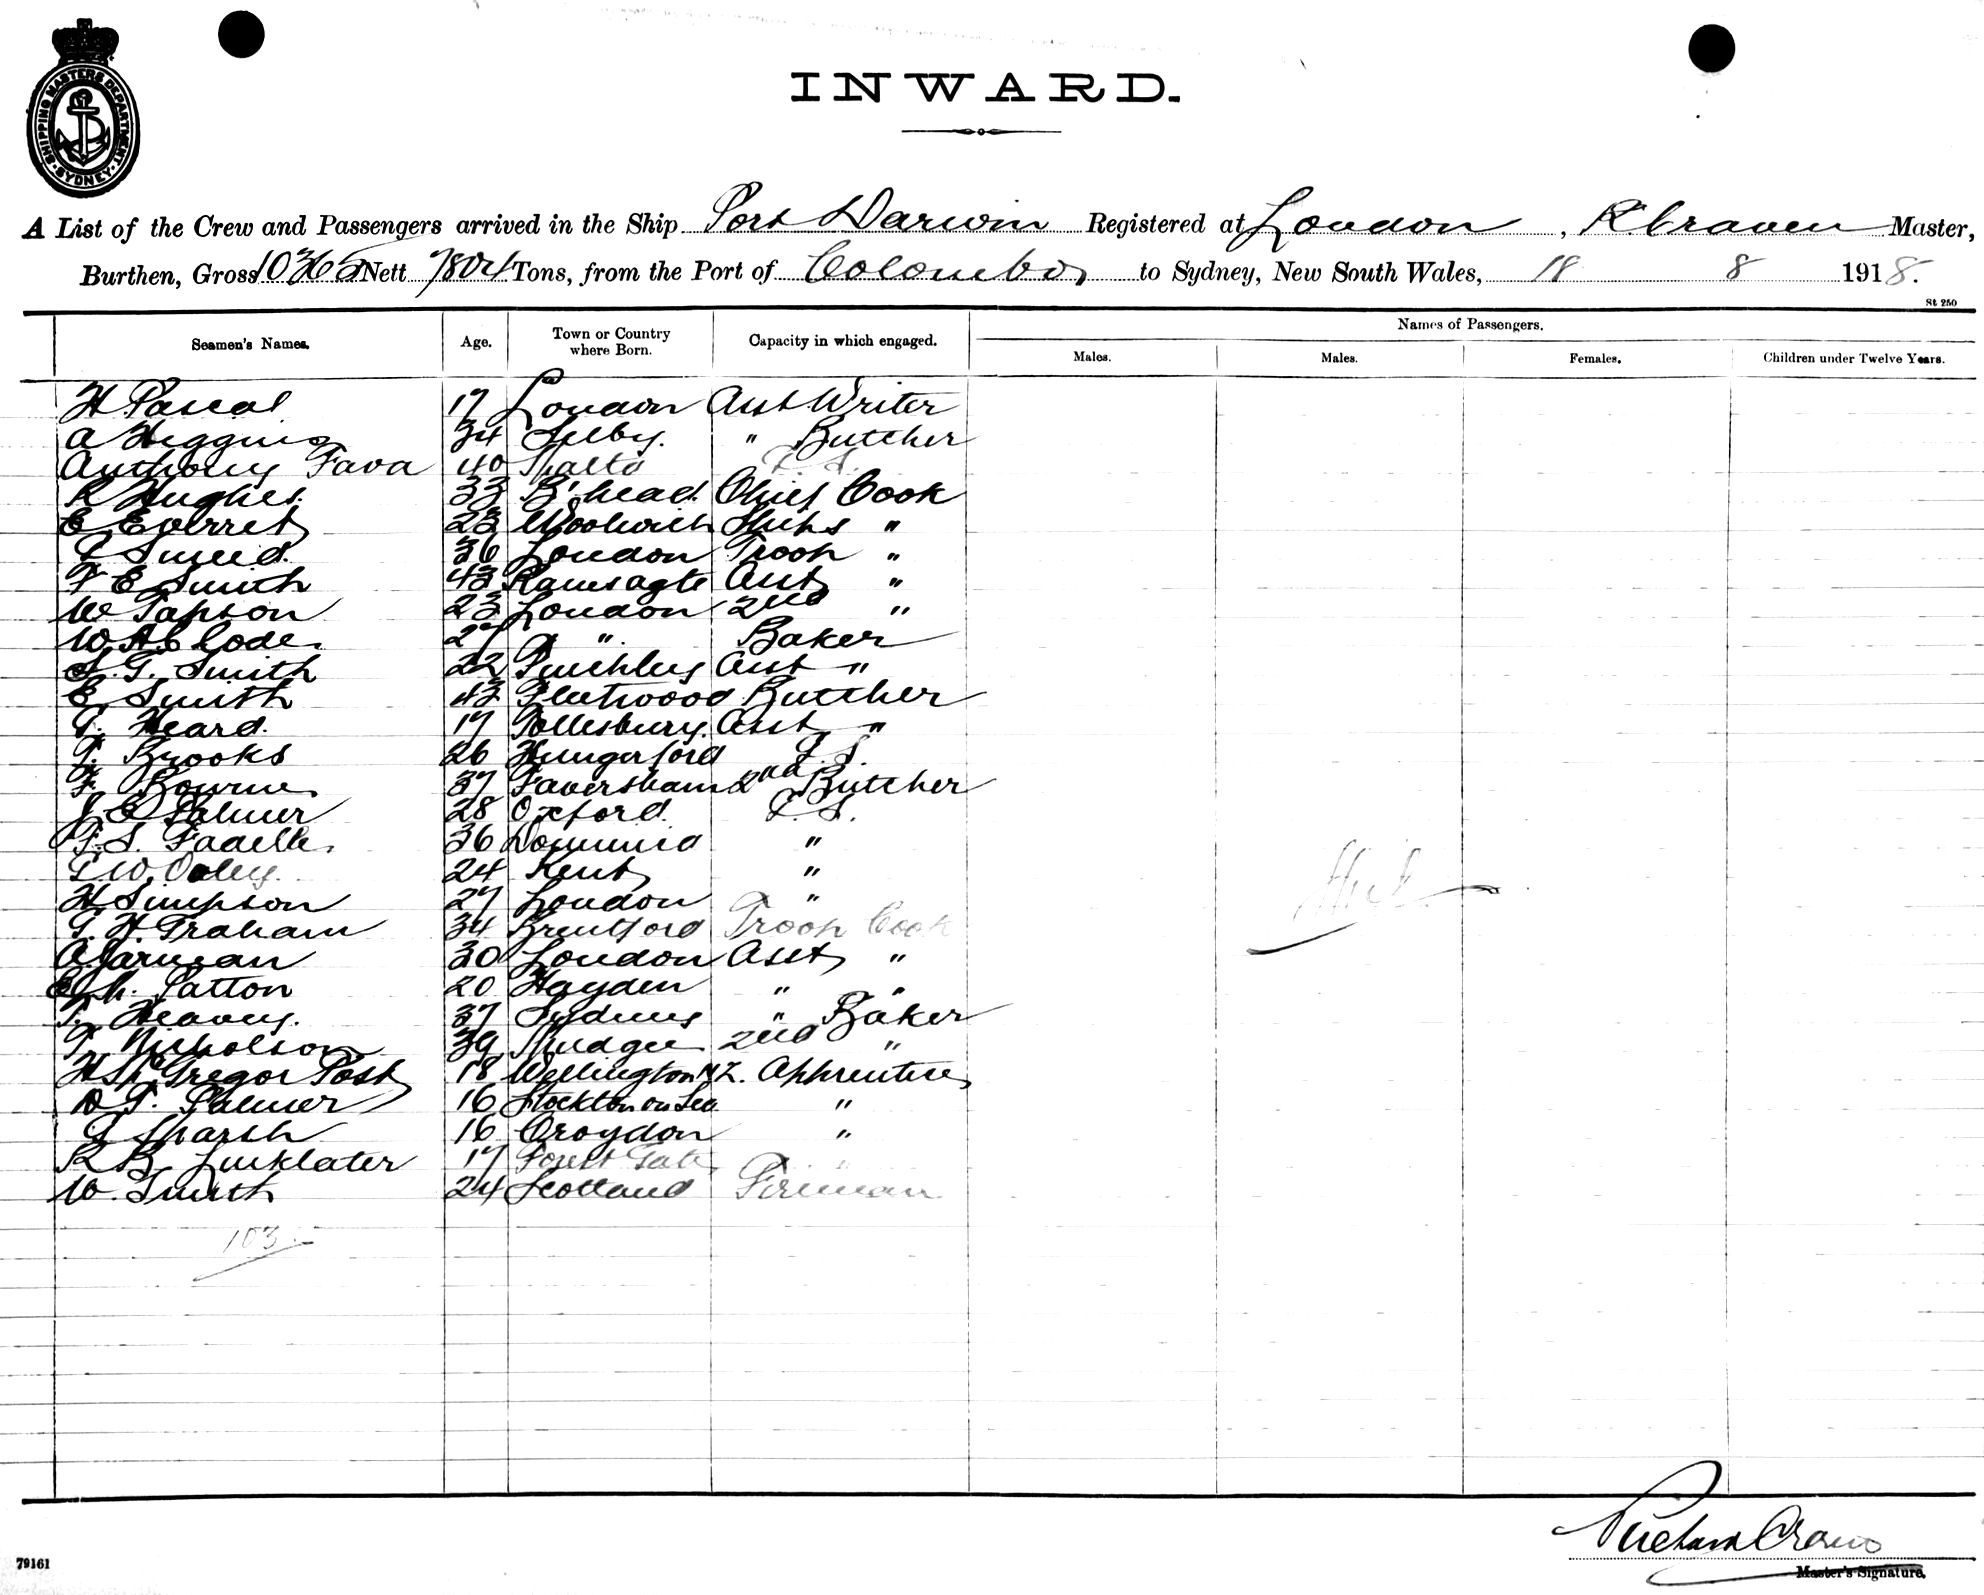 SHIPPING MASTERS DEPARTMENT SYDNEY
INWARD.
A List of the Crew and Passengers arrived in the Ship Port Darwin Registered at London, R Craven Master,
Burthen, Gross 10365 Nett 7804 Tons, from the Port of Colombo, to Sydney, New South Wales, 18 8 1918.
St 250
Seamen's Names. Age. Town or Country where Born. Capacity in which engaged. Names of Passengers.
Males. Males. Females. Children under Twelve Years.
H Pascal 17 London Asst Writer
A Higgins 34 Selby. " Butcher
Anthony Fava 40 Malta
R Hughes 33 B'head. Chief Cook
E Everret 23 Woolwich Ships "
36 London Troop "
F E Smith 43 Ramsagte Asst "
W Tapson 23 London 2nd "
W.H. Clode. 27 " Baker
S. G. Smith 22 Finchley Asst "
E Smith 43 Fleetwood Butcher
G. Heard. 17 Tollesbury. Asst "
T. Brooks 26 Hungerford
F. Bourne 37 Faversham 2nd Butcher
J E Palmer 28 Oxford.
F. S. 36 "
24 Kent "
H Simpson 27 London "
G. H. Graham 34 Brentford Troop Cook
A Jarman 30 London Asst "
Patton 20 Hayden " "
T. Heavey. 37 Sydney " Baker
T. Nicholson 39 Mudgee 2nd "
H McGregor Post 18 Wellington NZ. Apprentice
D. G. Palmer 16 Stockton on "
Marsh 16 Croydon "
R B. Linklater 17 Forest Gate "
W. Smith 24 Scotland Fireman
103
Richard Craven
Master's Signature.
79161